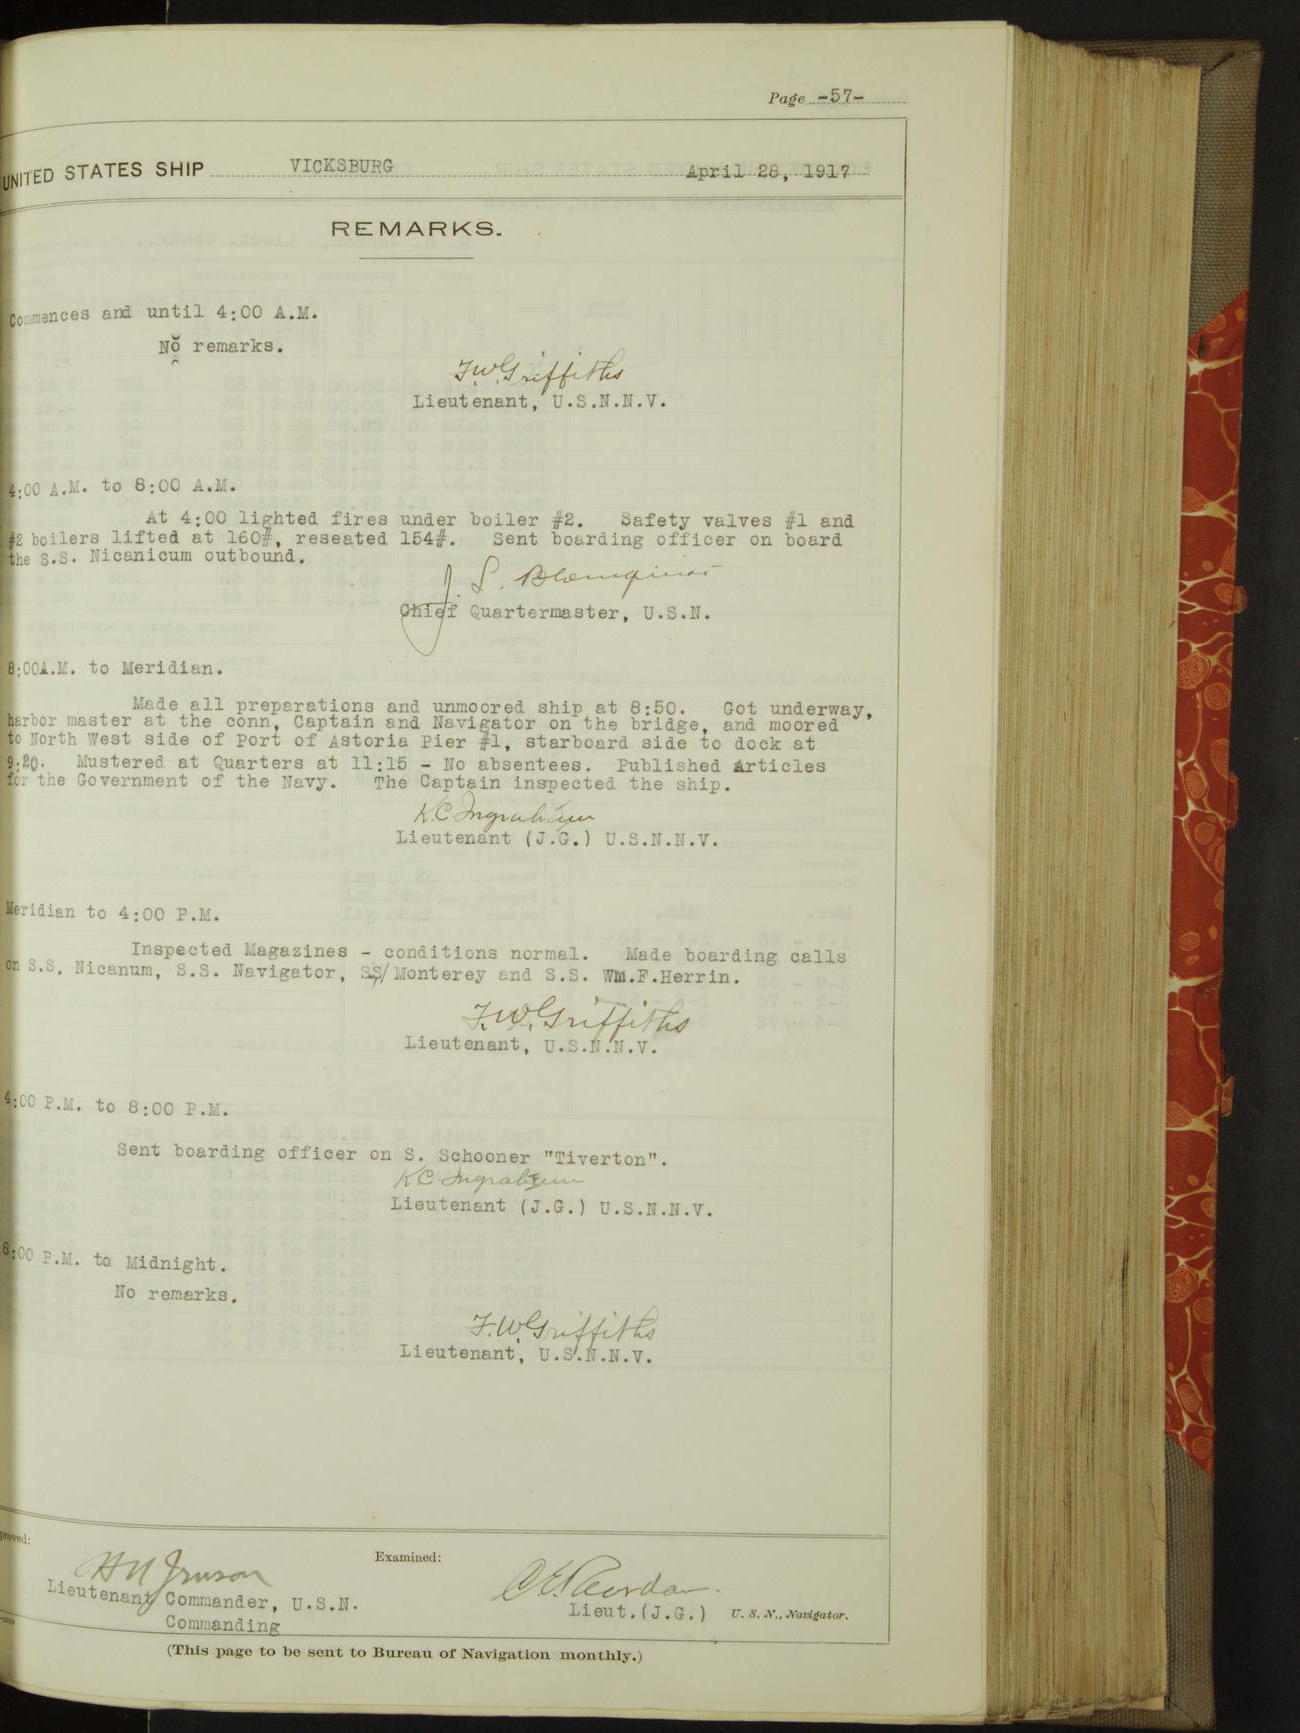 Page -57-
UNITED STATES SHIP VICKSBURG April 28, 1917
REMARKS.
Commences and until 4:00 A.M.
No remarks.
F.W.Griffiths
Lieutenant, U.S.N.N.V.
4:00 A.M. to 8:00 A.M.
At 4:00 lighted fires under boiler #2. Safety valves #1 and
#2 boilers lifted at 160#, reseated 154#. Sent boarding officer on board
the S.S. Nicanicum outbound.
J. S.
Chief Quartermaster, U.S.N.
8:00A.M. to Meridian.
Made all preparations and unmoored ship at 8:50. Got underway,
harbor master at the conn, Captain and Navigator on the bridge, and moored
to North West side of Port of Astoria Pier #1, starboard side to dock at
9:20. Mustered at Quarters at 11:15 - No absentees. Published Articles
for the Government of the Navy. The Captain inspected the ship.
K.C. Ingraham
Lieutenant (J.G.) U.S.N.N.V.
Meridian to 4:00 P.M.
Inspected Magazines - conditions normal. Made boarding calls
on S.S. Nicanum, S.S. Navigator, SS/ Monterey and S.S. Wm.F.Herrin.
F.W.Griffiths
Lieutenant, U.S.N.N.V.
4:00 P.M. to 8:00 P.M.
Sent boarding officer on S. Schooner "Tiverton".
K.C. Ingraham
Lieutenant (J.G.) U.S.N.N.V.
8:00 P.M. to Midnight.
No remarks.
F.W.Griffiths
Lieutenant, U.S.N.N.V.
proved:
Examined:
Lieutenant Commander, U.S.N.
Commanding
Lieut.(J.G.) U. S. N., Navigator.
(This page to be sent to Bureau of Navigation monthly.)